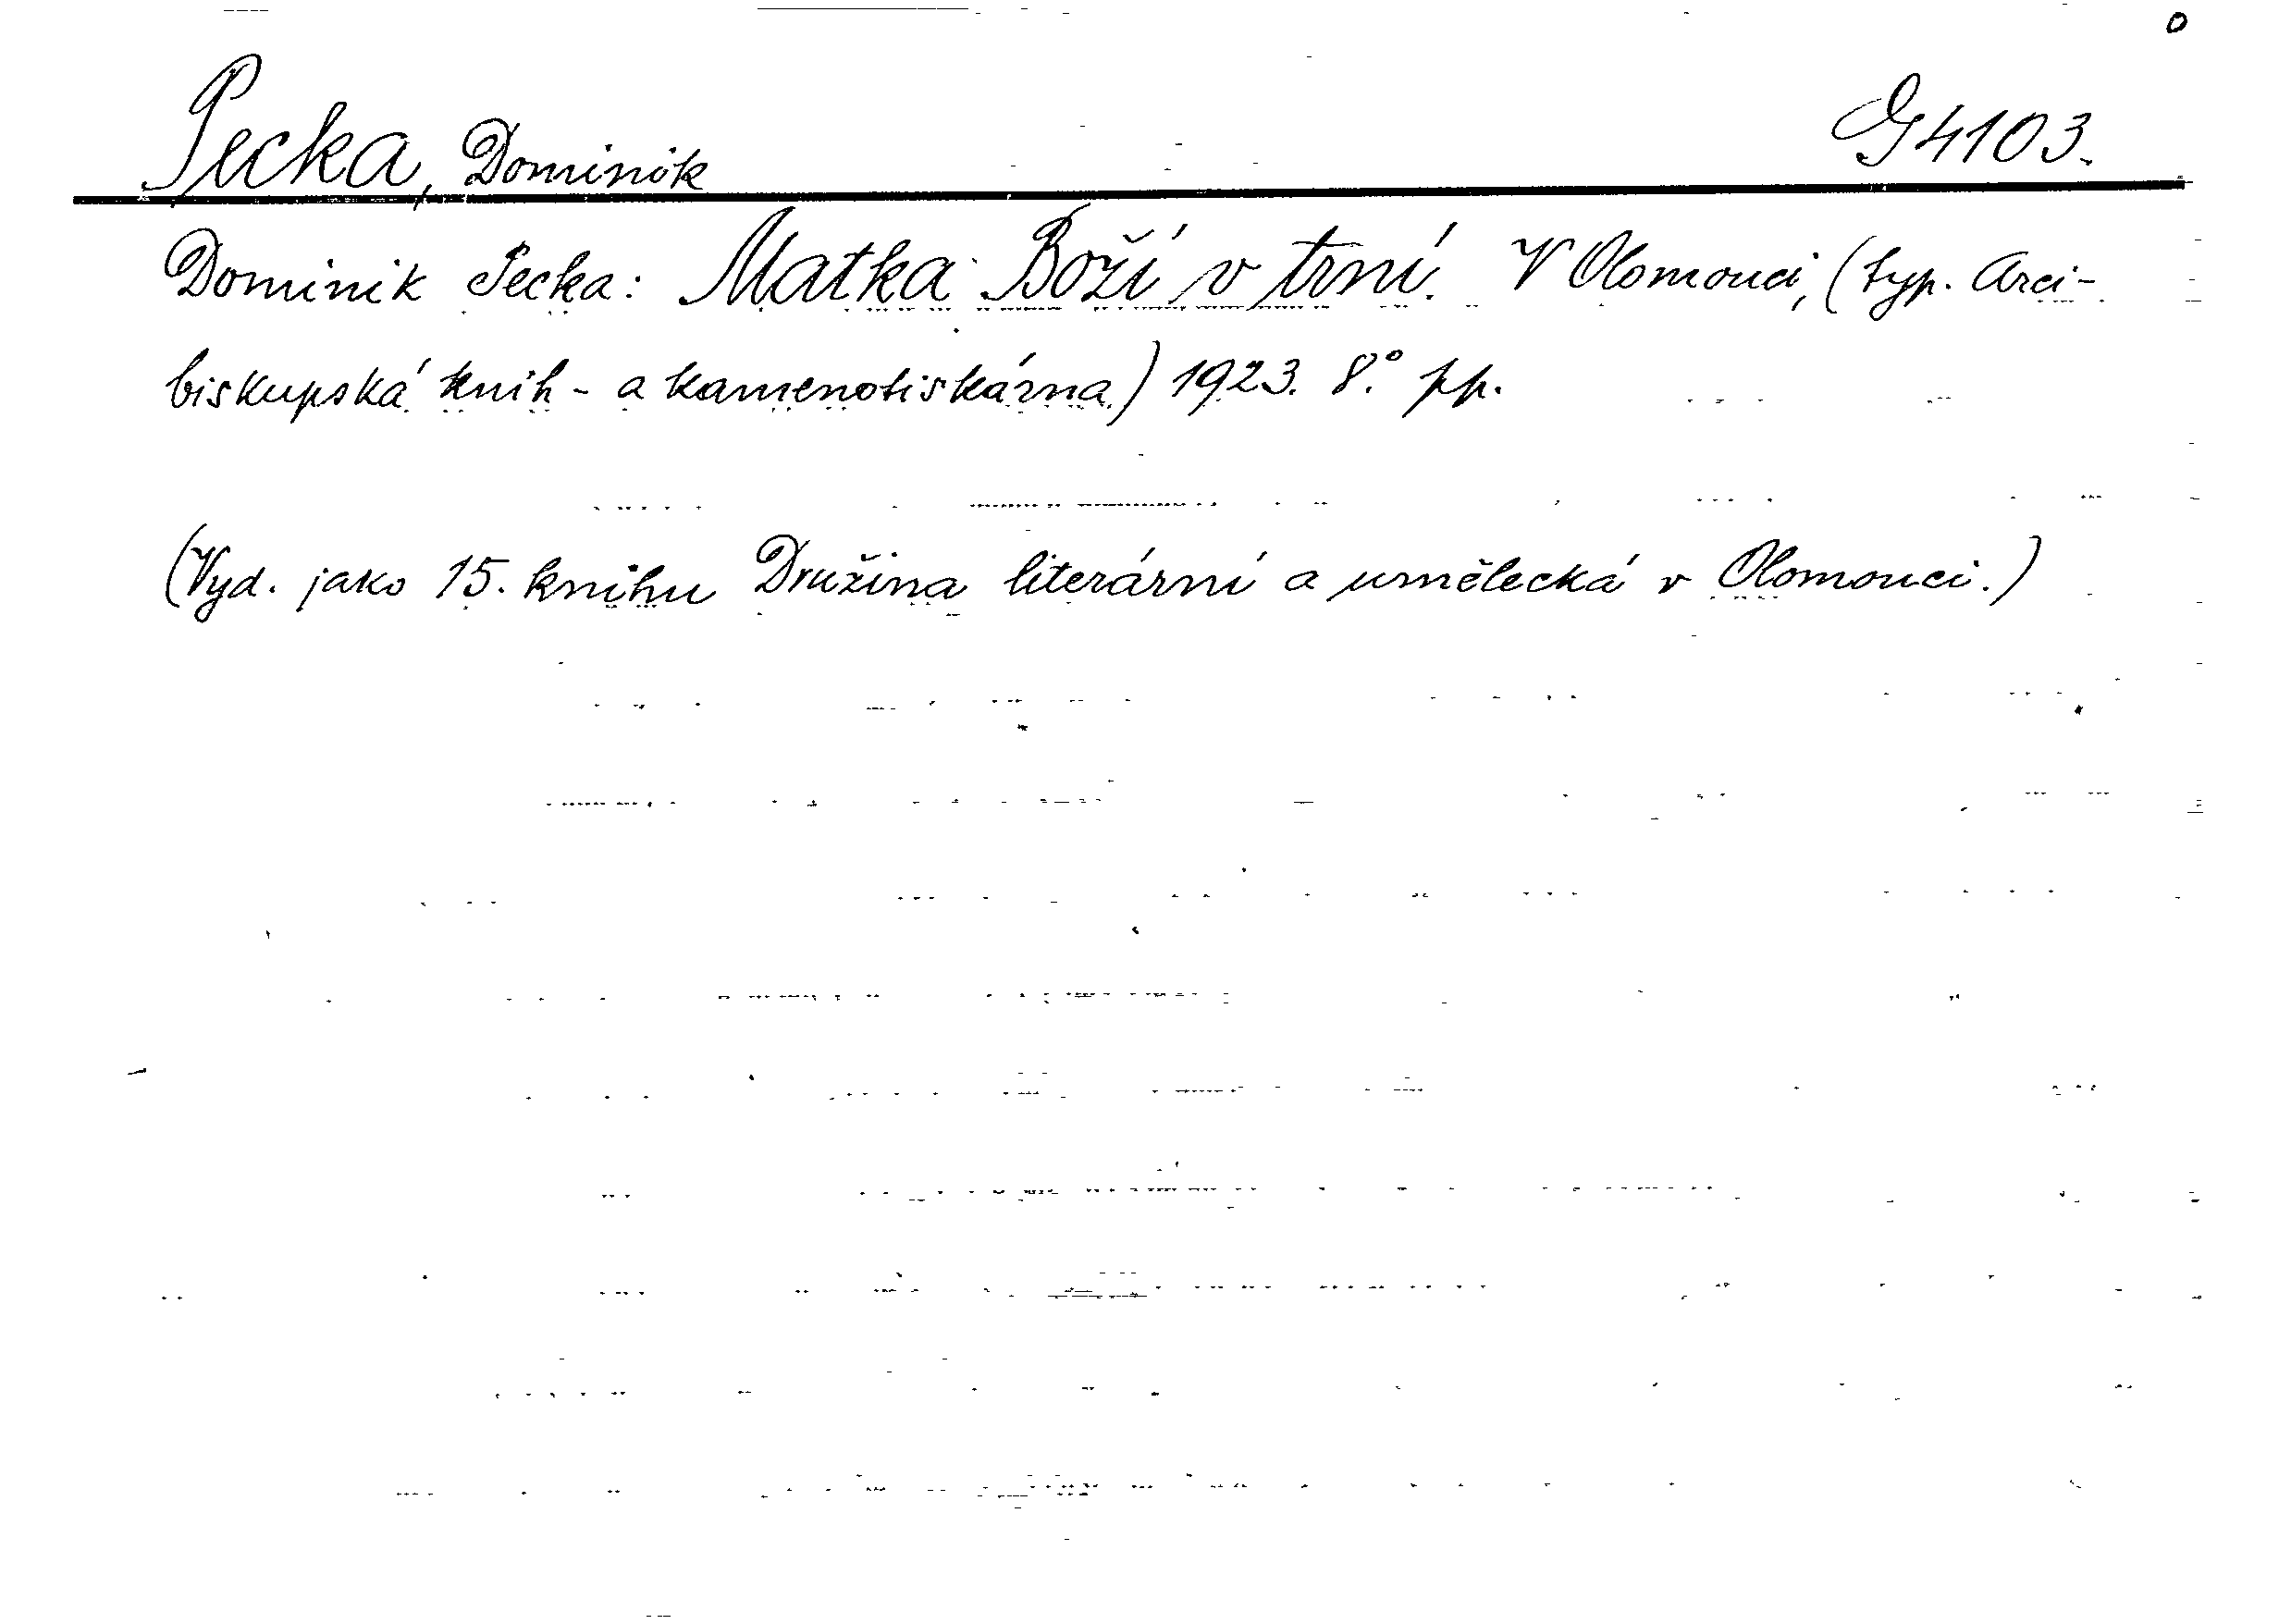 Pecka, Dominik G 4103.
Dominik Pecka: Matka Boží v trní. V Olomouci, (typ. Arci-
biskupská knih- a kamenotiskárna) 1923. 8.° pp.
(Vyd. jako 15. knihu Družina literární a umělecká v Olomouci.)